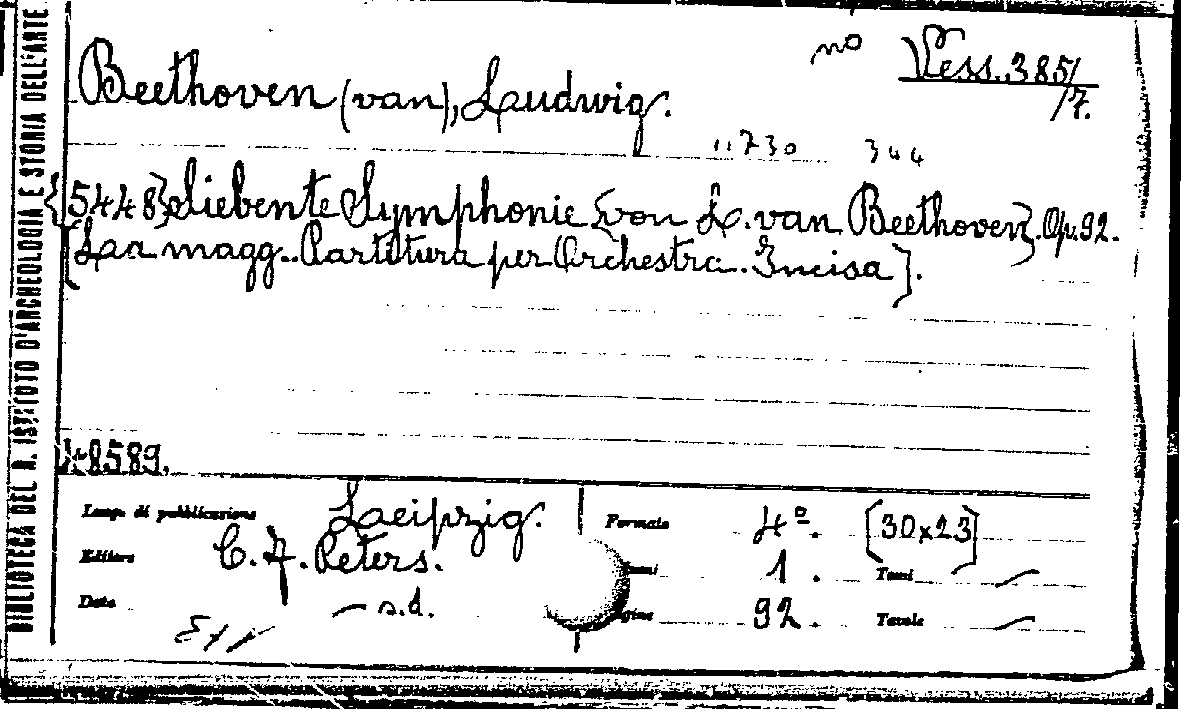 BIBLIOTECA DEL R. ISTITUTO D'ARCHEOLOGIA E STORIA DELL'ARTE
no Vess. 385/
/7.
Beethoven (van), Ludwig.
11730 344
{5448} Siebente Symphonie {von L. van Beethoven}. Op. 92.
[La magg. Partitura per Orchestra. Incisa].
48589.
Luogo di pubblicazione Leipzig. Formato 4º. [30x23]
Editore C. F. Peters. 1. Tomi —
Data — s.d. Pagine 92. Tavole —